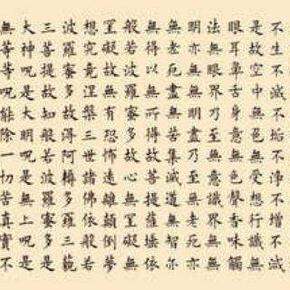 不生不滅不垢不淨不增不減
是故空中無色無受想行識無
眼耳鼻舌身意無色聲香味觸
法無眼界乃至無意識界無無
明亦無無明盡乃至無老死亦
無老死盡無苦集滅道無智亦
無得以無所得故菩提薩埵依
般若波羅蜜多故心無罣礙無
罣礙故無有恐怖遠離顛倒夢
想究竟涅槃三世諸佛依般若
波羅蜜多故得阿耨多羅三藐
三菩提故知般若波羅蜜多是
大神呪是大明呪是無上呪是
無等等呪能除一切苦真實不